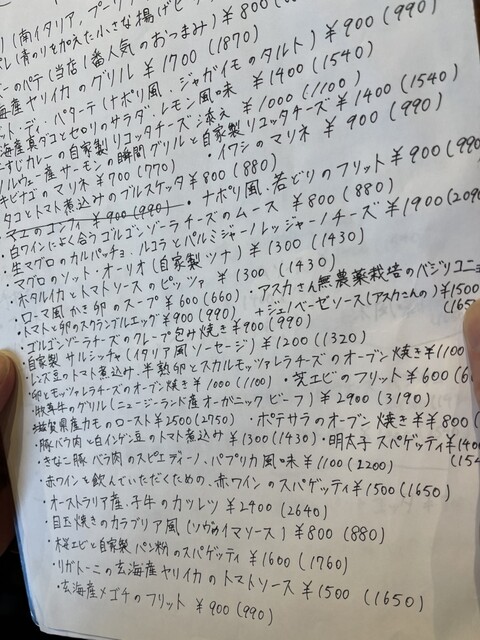 (南イタリア、プーリ
(青のりを加えた小さな揚げピ ¥800(
のパテ(当店1番人気のおつまみ) ¥900(990)
海産ヤリイカのグリル ¥1700(1870)
ット・ディ・パターテ(ナポリ風・ジャガイモのタルト) ¥900(990)
海産真ダコとセロリのサラダ・レモン風味 ¥1400(1540)
すじカレーの自家製リコッタチーズ添え ¥1000(1100)
ルウェー産サーモンの瞬間グリルと自家製リコッタチーズ ¥1400(1540)
キビナゴのマリネ ¥700(770) ・イワシのマリネ ¥900(990)
タコとトマト煮込みのブルスケッタ ¥800(880)
のコンフィ ¥900(990) ・ナポリ風・若どりのフリット ¥900(990
・白ワインによく合うゴルゴンゾーラチーズのムース ¥800(880)
・生マグロのカルパッチョ・ルコラとパルミジャーノレッジャーノチーズ ¥1900(2090
・マグロのソット・オーリオ(自家製ツナ) ¥1300(1430)
・ホタルイカとトマトソースのピッツァ ¥1300(1430)
・ローマ風かき卵のスープ ¥600(660) ・アスカさん無農薬栽培のバジリコニョ
・トマトと卵のスクランブルエッグ ¥900(990) +ジェノベーゼソース(アスカさんの) ¥1500
・ゴルゴンゾーラチーズのクレープ包み焼き ¥900(990) (165
・自家製サルシッチャ(イタリア風ソーセージ) ¥1200(1320)
・レンズ豆のトマト煮込み・半熟卵とスカルモッツァレラチーズのオーブン焼き ¥1100
・卵とモッツァレラチーズのオーブン焼き ¥1000(1100) ・芝エビのフリット ¥600(6
・牧草牛のグリル(ニュージーランド産オーガニックビーフ) ¥2900(3190)
・滋賀県産カモのロースト ¥2500(2750) ・ポテサラのオーブン焼き ¥¥800(
・豚バラ肉と白インゲン豆のトマト煮込み ¥1300(1430) ・明太子スパゲッティ ¥1400
・きなこ豚バラ肉のスピエディーノ、パプリカ風味 ¥1100(1200) (154
・赤ワインを飲んでいただくための、赤ワインのスパゲッティ ¥1500(1650)
・オーストラリア産・子牛のカツレツ ¥2400(2640)
・目玉焼きのカラブリア風(ンドゥイヤソース) ¥800(880)
・桜エビと自家製パン粉のスパゲッティ ¥1600(1760)
・リガトーニの玄海産ヤリイカのトマトソース ¥1500(1650)
・玄海産メゴチのフリット ¥900(990)